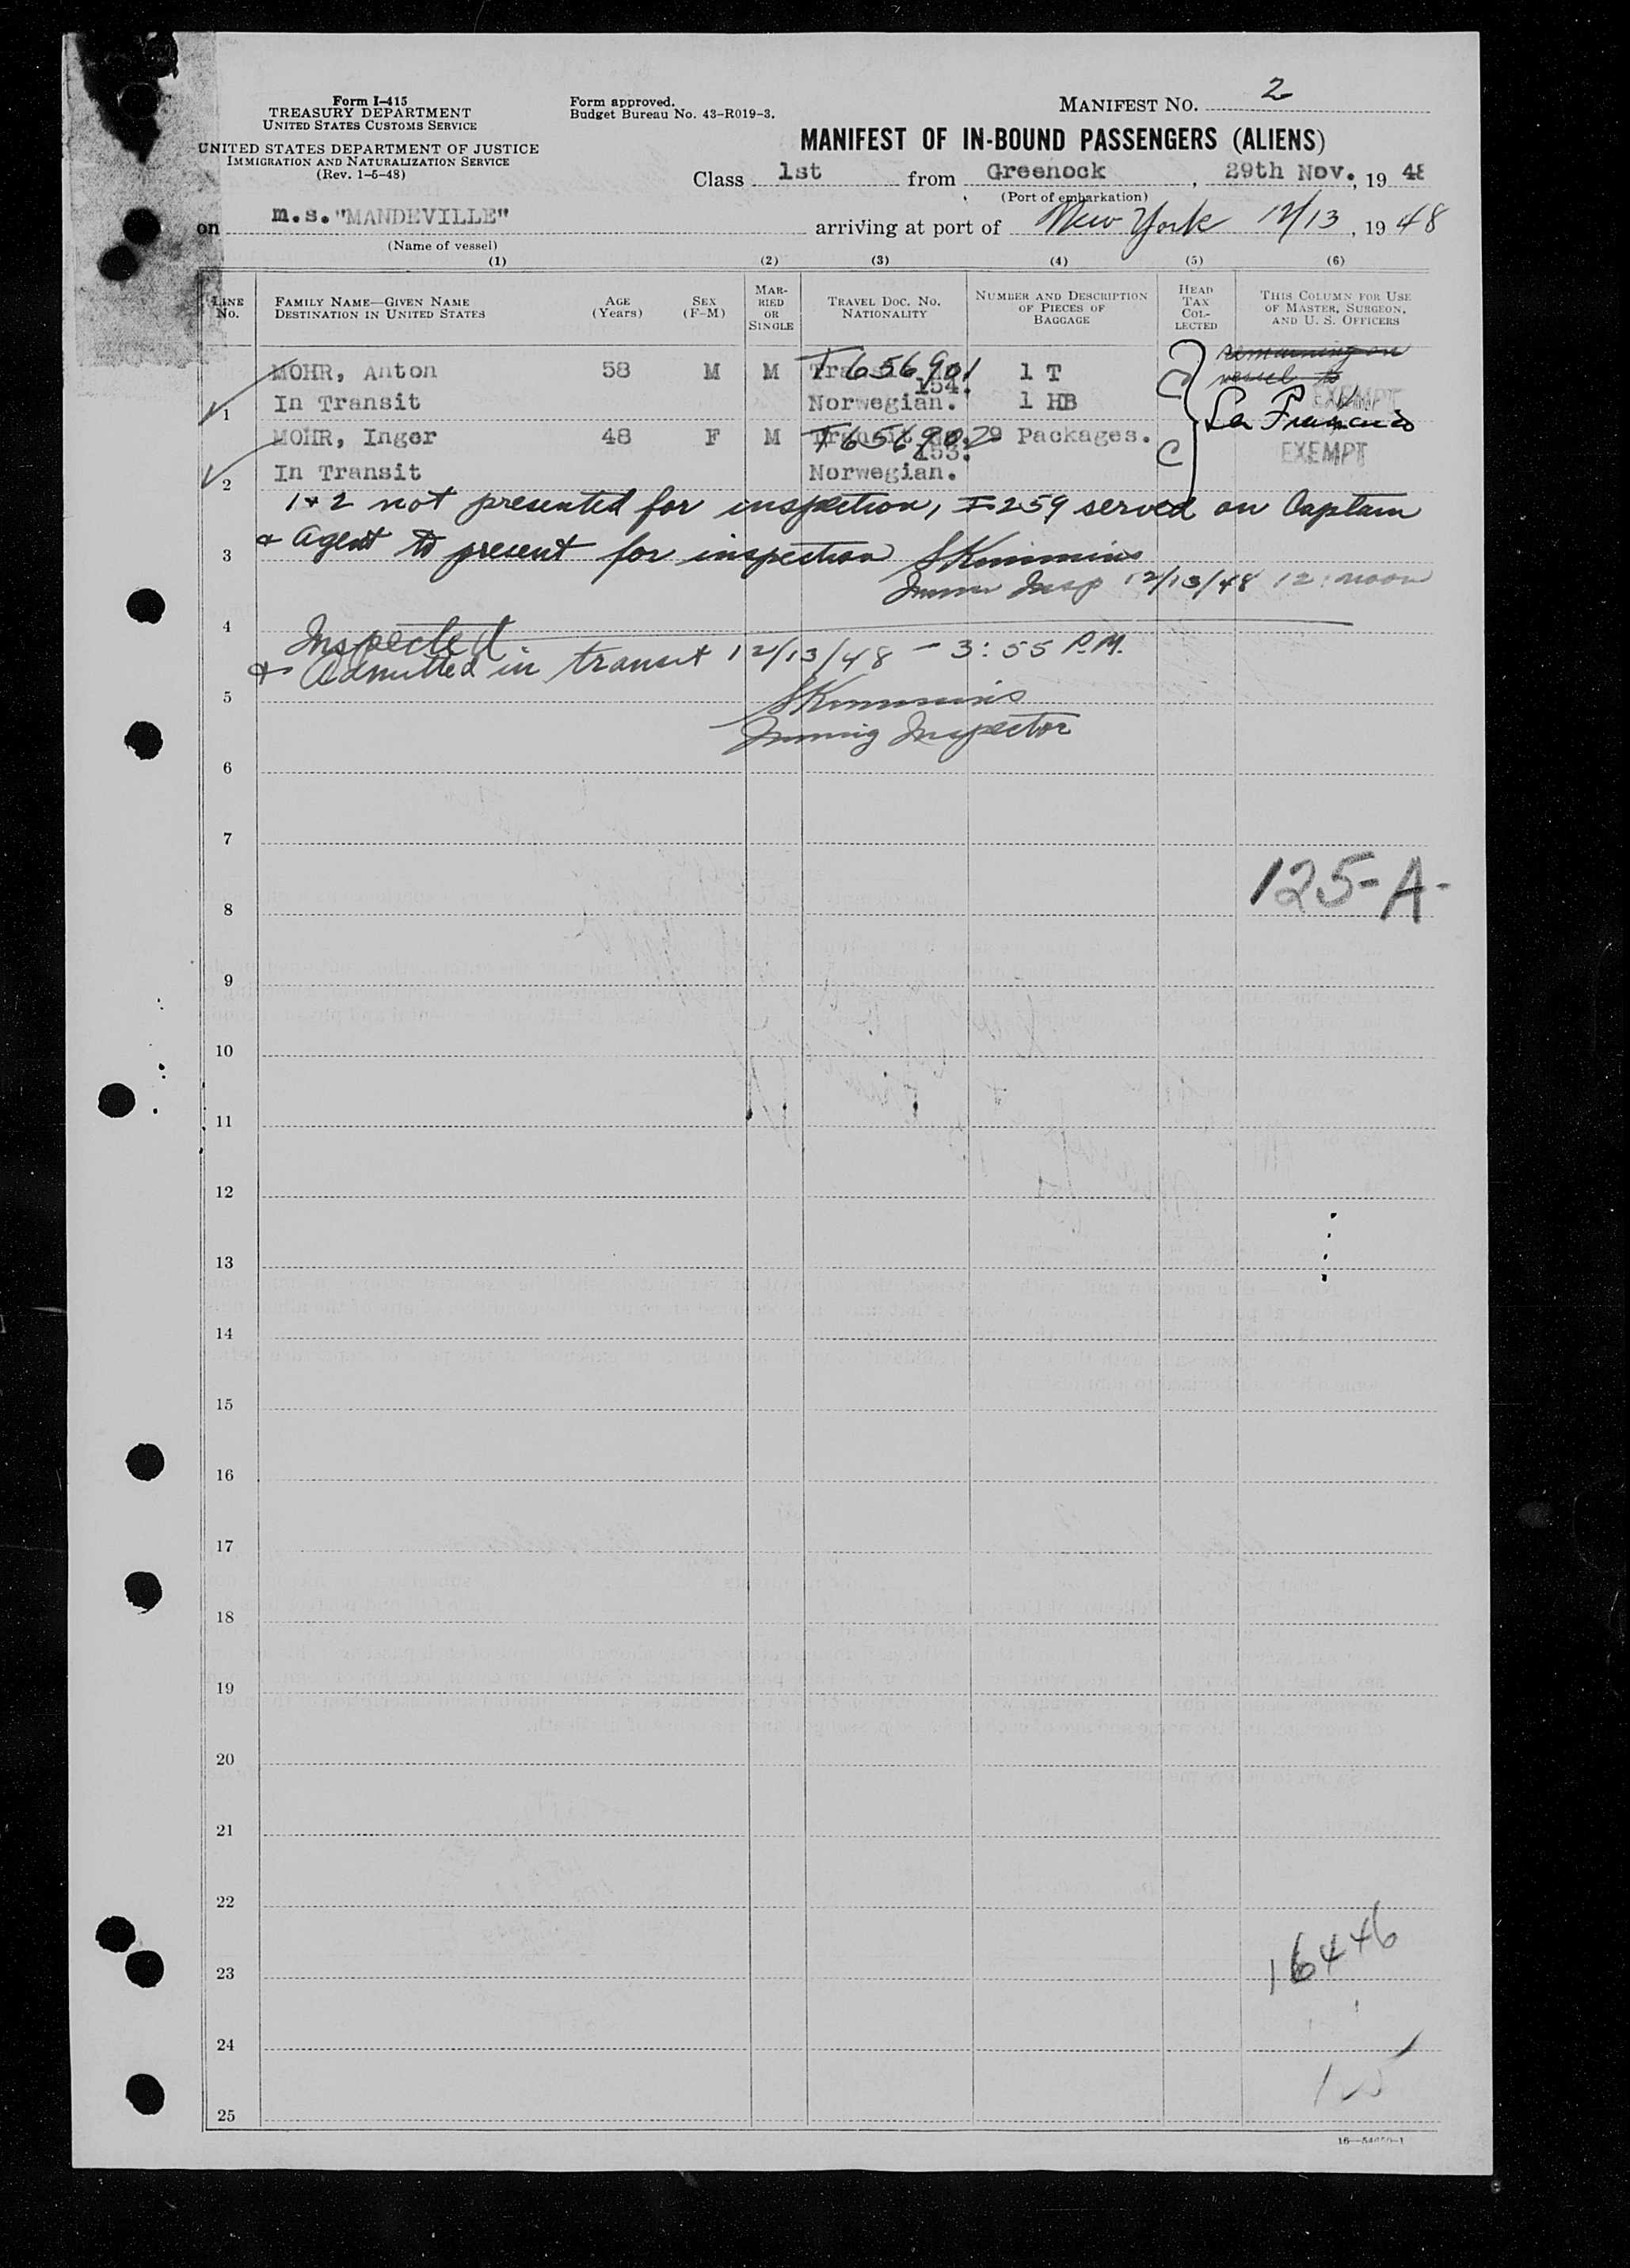 Form I-415
TREASURY DEPARTMENT
UNITED STATES CUSTOMS SERVICE
UNITED STATES DEPARTMENT OF JUSTICE
IMMIGRATION AND NATURALIZATION SERVICE
(Rev. 1-5-48)
Form approved.
Budget Bureau No. 43-R019-3.
MANIFEST NO. 2
MANIFEST OF IN-BOUND PASSENGERS (ALIENS)
Class 1st from Greenock, 29th Nov., 19 48
(Port of embarkation)
on m.s."MANDEVILLE" arriving at port of New York 12/13, 19 48
(Name of vessel)
(1) (2) (3) (4) (5) (6)
LINE No. FAMILY NAME—GIVEN NAME DESTINATION IN UNITED STATES AGE (Years) SEX (F-M) MARRIED OR SINGLE TRAVEL DOC. NO. NATIONALITY NUMBER AND DESCRIPTION OF PIECES OF BAGGAGE HEAD TAX COLLECTED THIS COLUMN FOR USE OF MASTER, SURGEON, AND U. S. OFFICERS
remaining on
vessel to
MOHR, Anton 58 M M T656901 1 T
154.
1 In Transit Norwegian. 1 HB EXEMPT
San Francisco
MOHR, Inger 48 F M T656902 29 Packages. C EXEMPT
153.
2 In Transit Norwegian.
1 & 2 not presented for inspection, I-259 served on Captain
3 & Agent to present for inspection SKimmins
Immi Insp 12/13/48 12:noon
4 Inspected
& Admitted in transit 12/13/48 - 3:55 P.M.
5 SKimmins
Immig Inspector
6
7
125-A-
8
9
10
11
12
13
14
15
16
17
18
19
20
21
22
16446
23
24
25